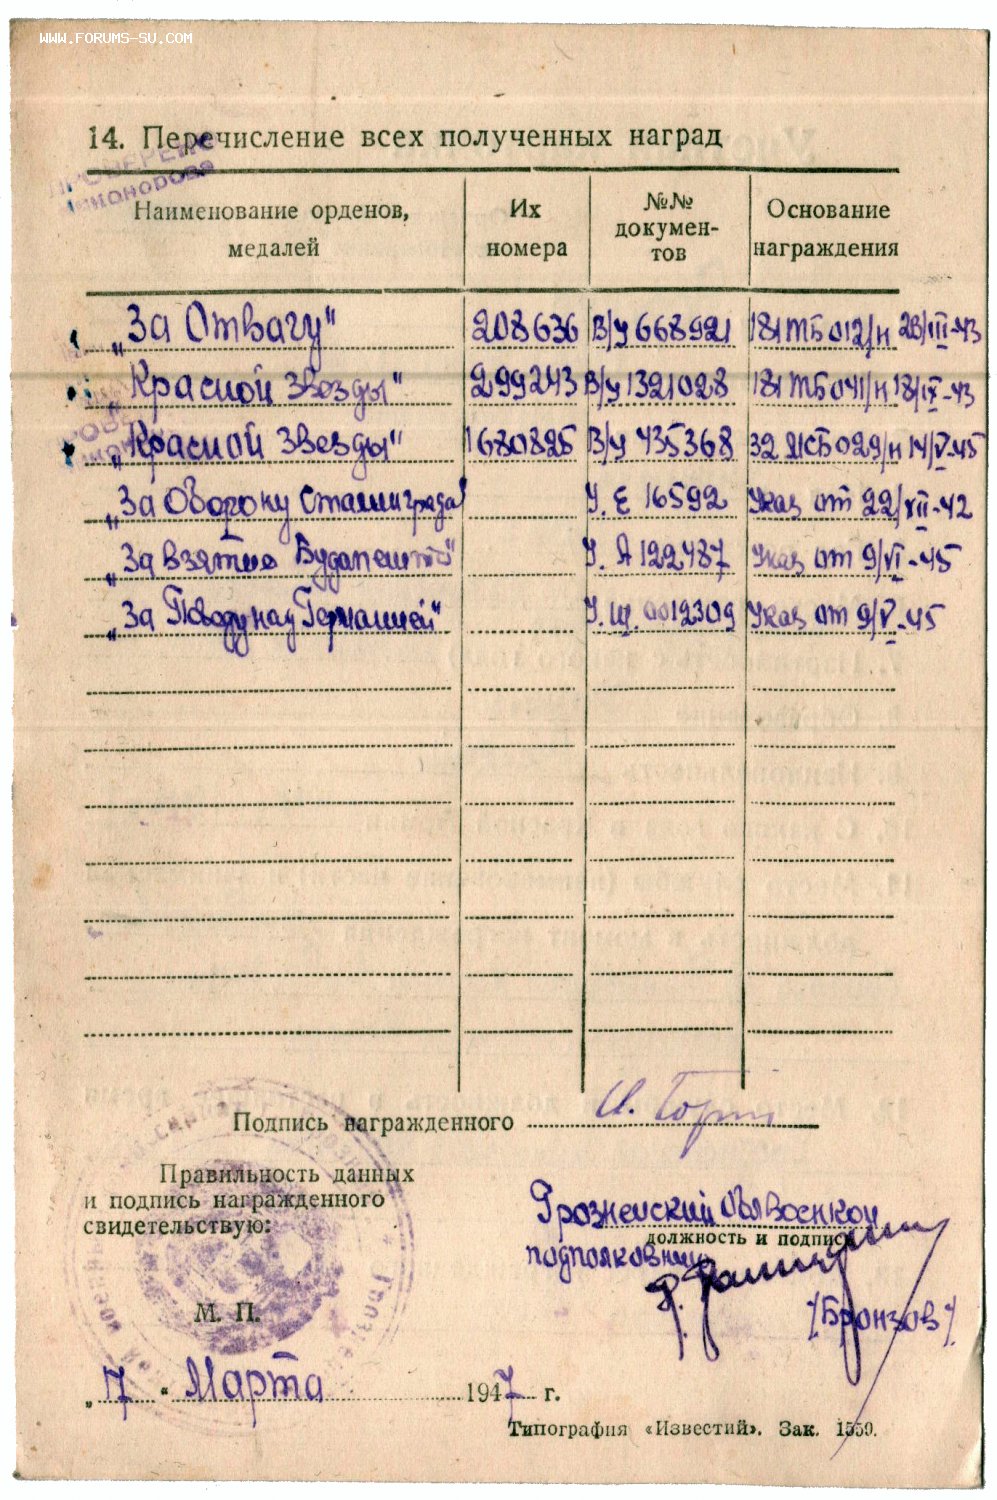 WWW.FORUMS-SU.COM
14. Перечисление всех полученных наград
ПРОВЕРЕНО
Наименование орденов, медалей
Их номера
№№ докумен-тов
Основание награждения
„За Отвагу" 208636 В/у 668921 181 ТБ 012/н 28/III-43
„Красной Звезды" 299243 В/у 1321028 181 ТБ 041/н 18/IX-43
„Красной Звезды" 1680825 В/у 435368 32 МСБ 029/н 14/V-45
„За Оборону Сталинграда" У. Е 16592 Указ от 22/XII-42
„За взятие Будапешта" У. А 122487 Указ от 9/VI-45
„За Победу над Германией" У. Щ. 0012309 Указ от 9/V-45
Подпись награжденного
Правильность данных
и подпись награжденного
свидетельствую:
Грозненский Облвоенком
должность и подпись
подполковник
/Бронзов/
М. П.
„7" Марта 1947 г.
Типография «Известий». Зак. 1559.